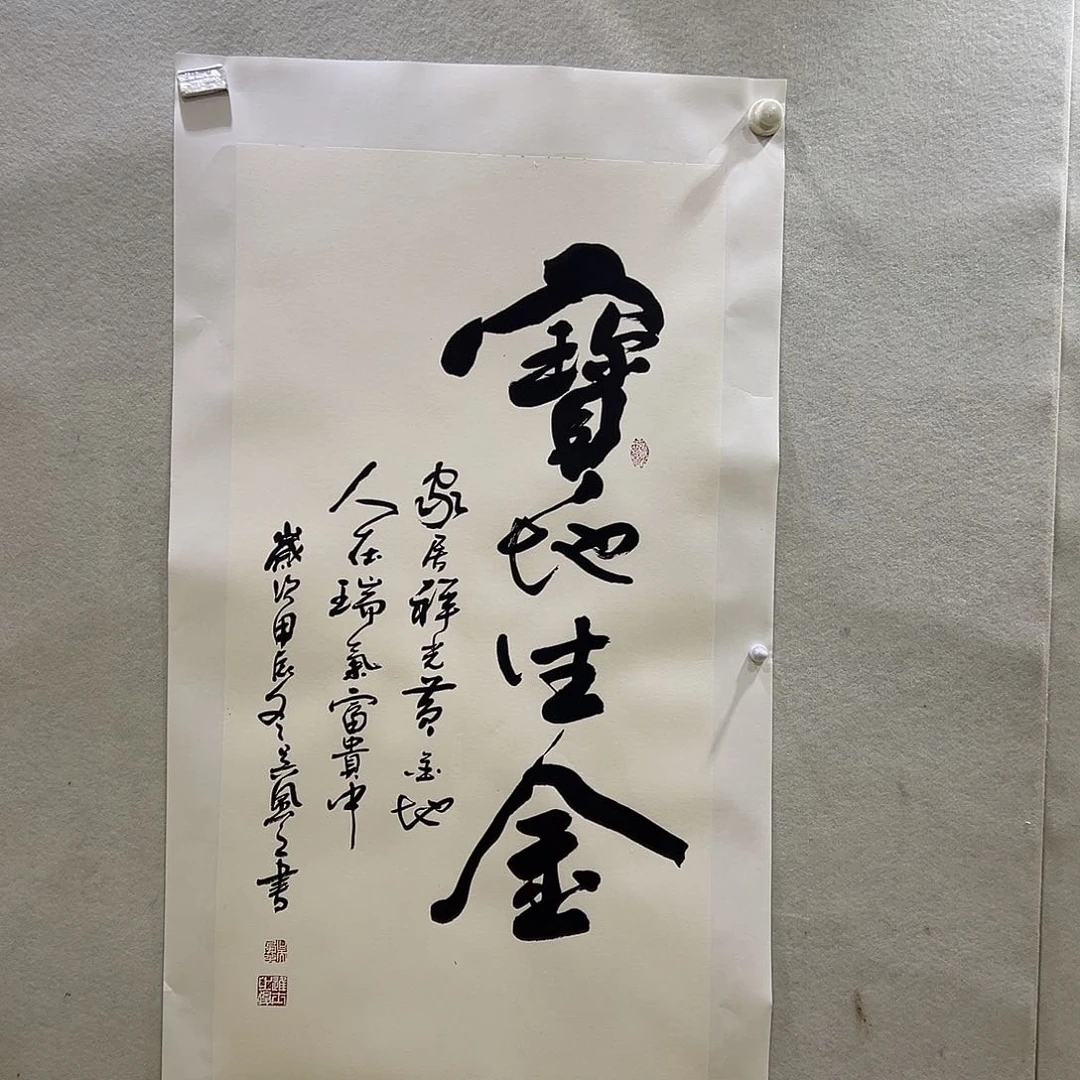 寶地生金
家居祥光黃金地
人在瑞氣富貴中
歲次甲辰冬吳風之書